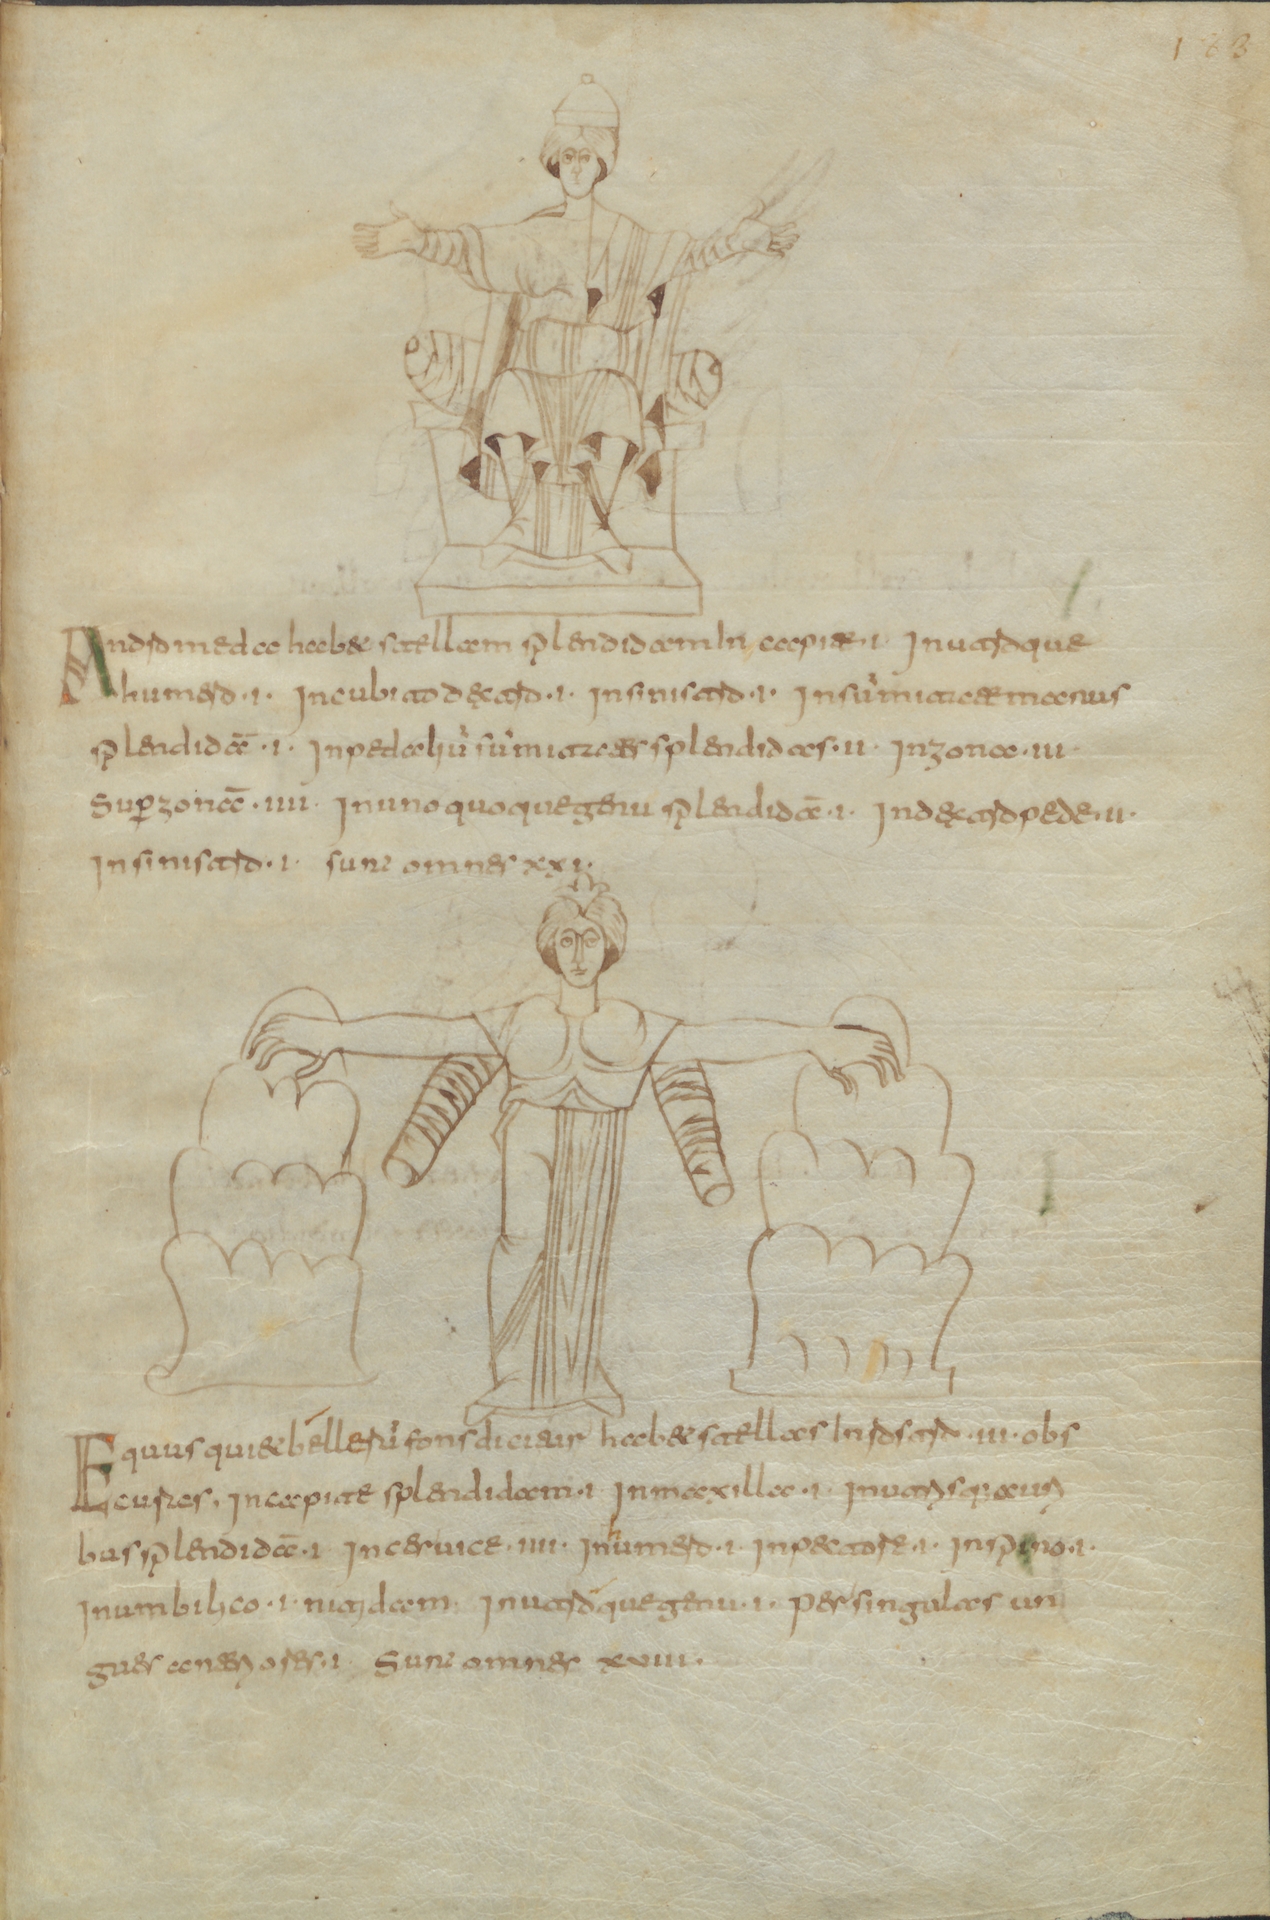 183
Andromeda habet stellam splendidam in capite · i · In utroque
humero · i · In cubito dextro · i · In sinistro · i · In sūmitate manus
splendidā · i · In pede
splendidas · ii · In zona · iii ·
Sup zonā · iiii · In uno quoque genu splendidā · i · In dextro pede · ii ·
In sinistro · i · Sunt omnes xxi ·
Equus qui et fons dicitur habet stellas In rostro · iii · obs
curas · In capite splendidam · i · In maxilla · i · In utrisq; auri
bus splendidā · i · In ceruice · iiii · In humero · i · In pectore · i · In spino · i ·
In umbilico · i · nitidam · In utroque genu · i · Per singulas un
gues anteriores · i · Sunt omnes xviii ·